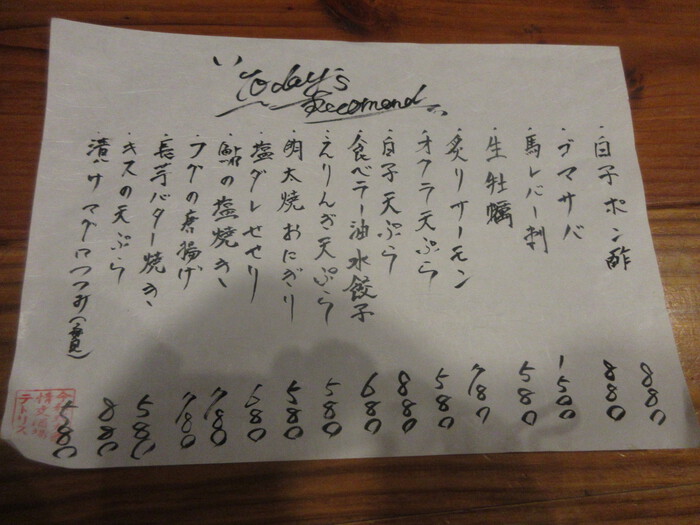 Today's
Recomend
・白子ポン酢 880
・ゴマサバ 880
・馬レバー刺 1500
・生牡蠣 580
・炙りサーモン 780
・オクラ天ぷら 580
・白子天ぷら 880
・食べラー油水餃子 680
・えりんぎ天ぷら 580
・明太焼おにぎり 580
・塩ダレせせり 680
・鮎の塩焼き 780
・フグの唐揚げ 780
・長芋バター焼き 580
・キスの天ぷら 880
・漬けマグロつつみ 580
テトリス